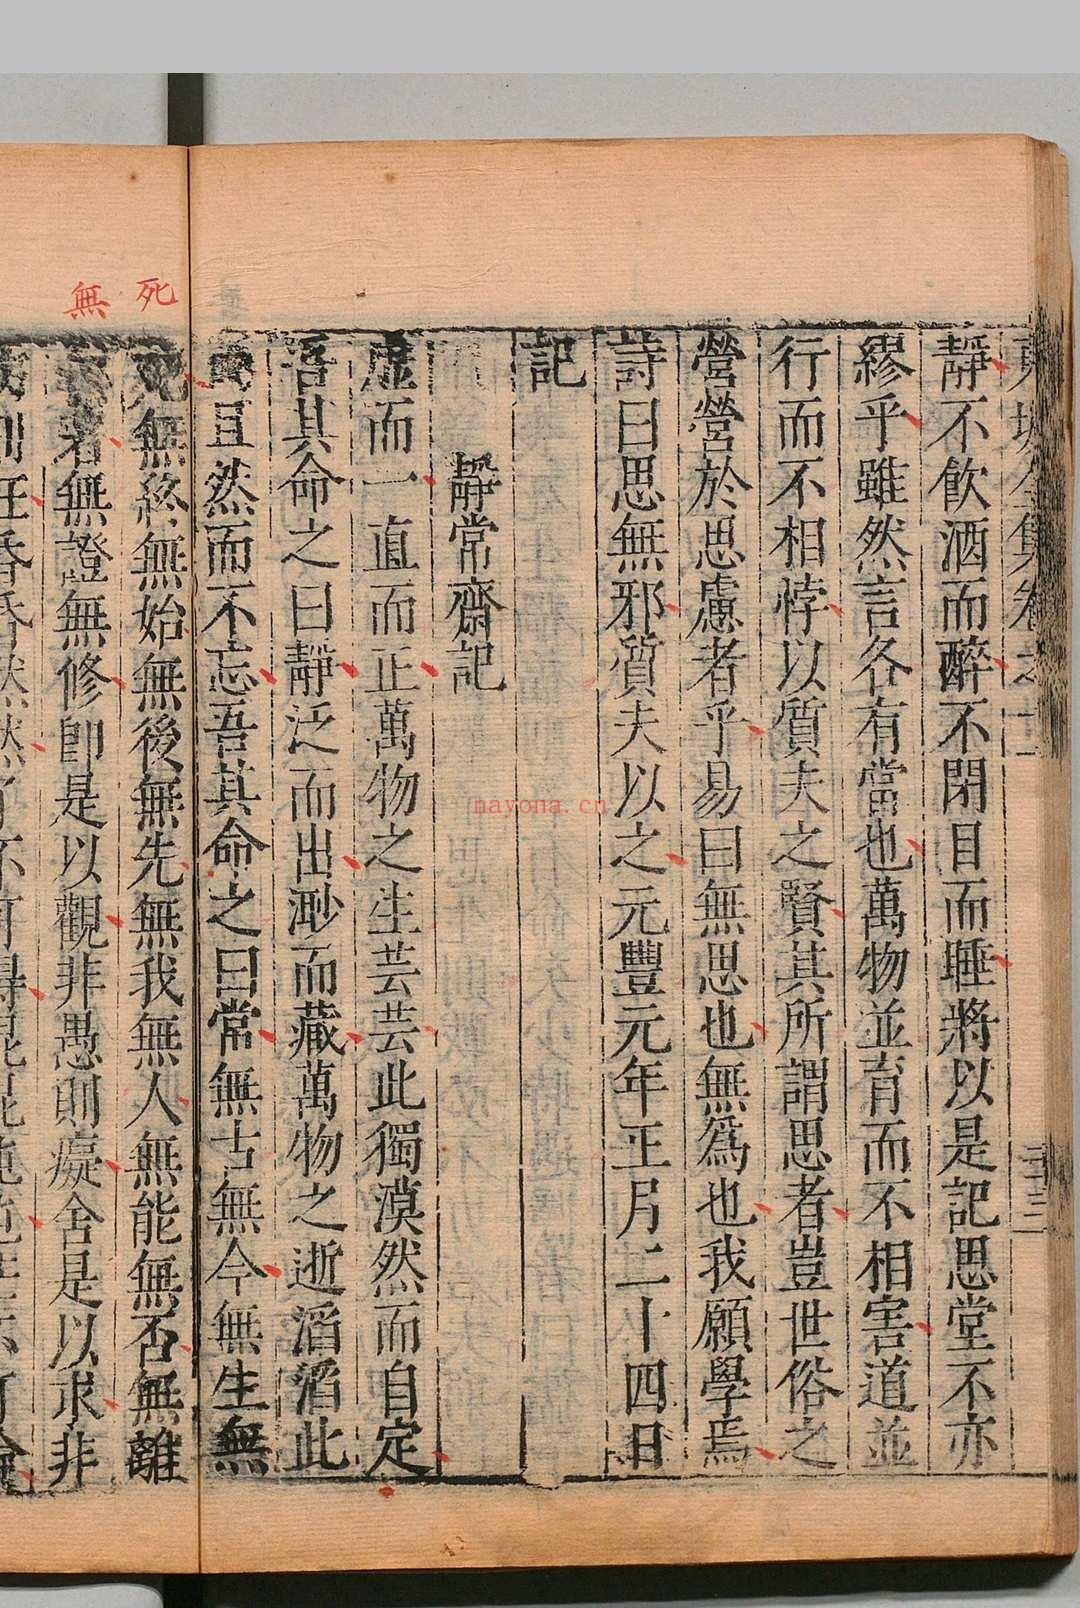 東坡全集卷之十一 二十三
靜不飲酒而醉不閉目而睡將以是記思堂不亦
繆乎雖然言各有當也萬物並育而不相害道並
行而不相悖以質夫之賢其所謂思者豈世俗之
營營於思慮者乎易曰無思也無爲也我願學焉
詩曰思無邪質夫以之元豐元年正月二十四日
記
靜常齋記
虛而一直而正萬物之生芸芸此獨漠然而自定
吾其命之曰靜泛而出渺而藏萬物之逝滔滔此
且然而不忘吾其命之曰常無古無今無生無
死無終無始無後無先無我無人無能無否無離
者無證無修卽是以觀非愚則癡舍是以求非
死
無
nayona.cn